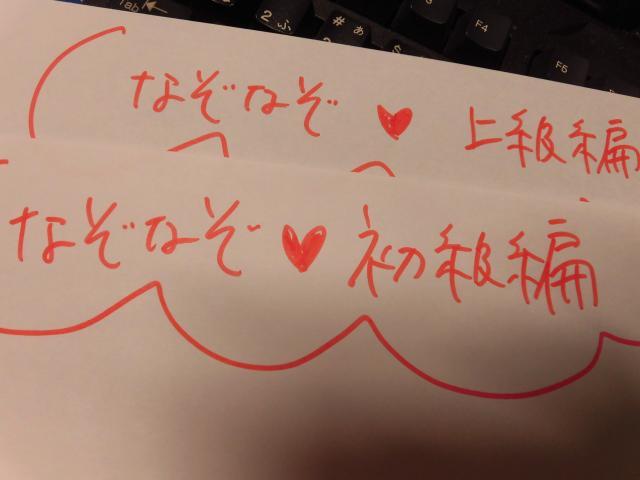 Tab
2 ふ
# あ
F4
F5
なぞなぞ♥上級編
なぞなぞ♥初級編